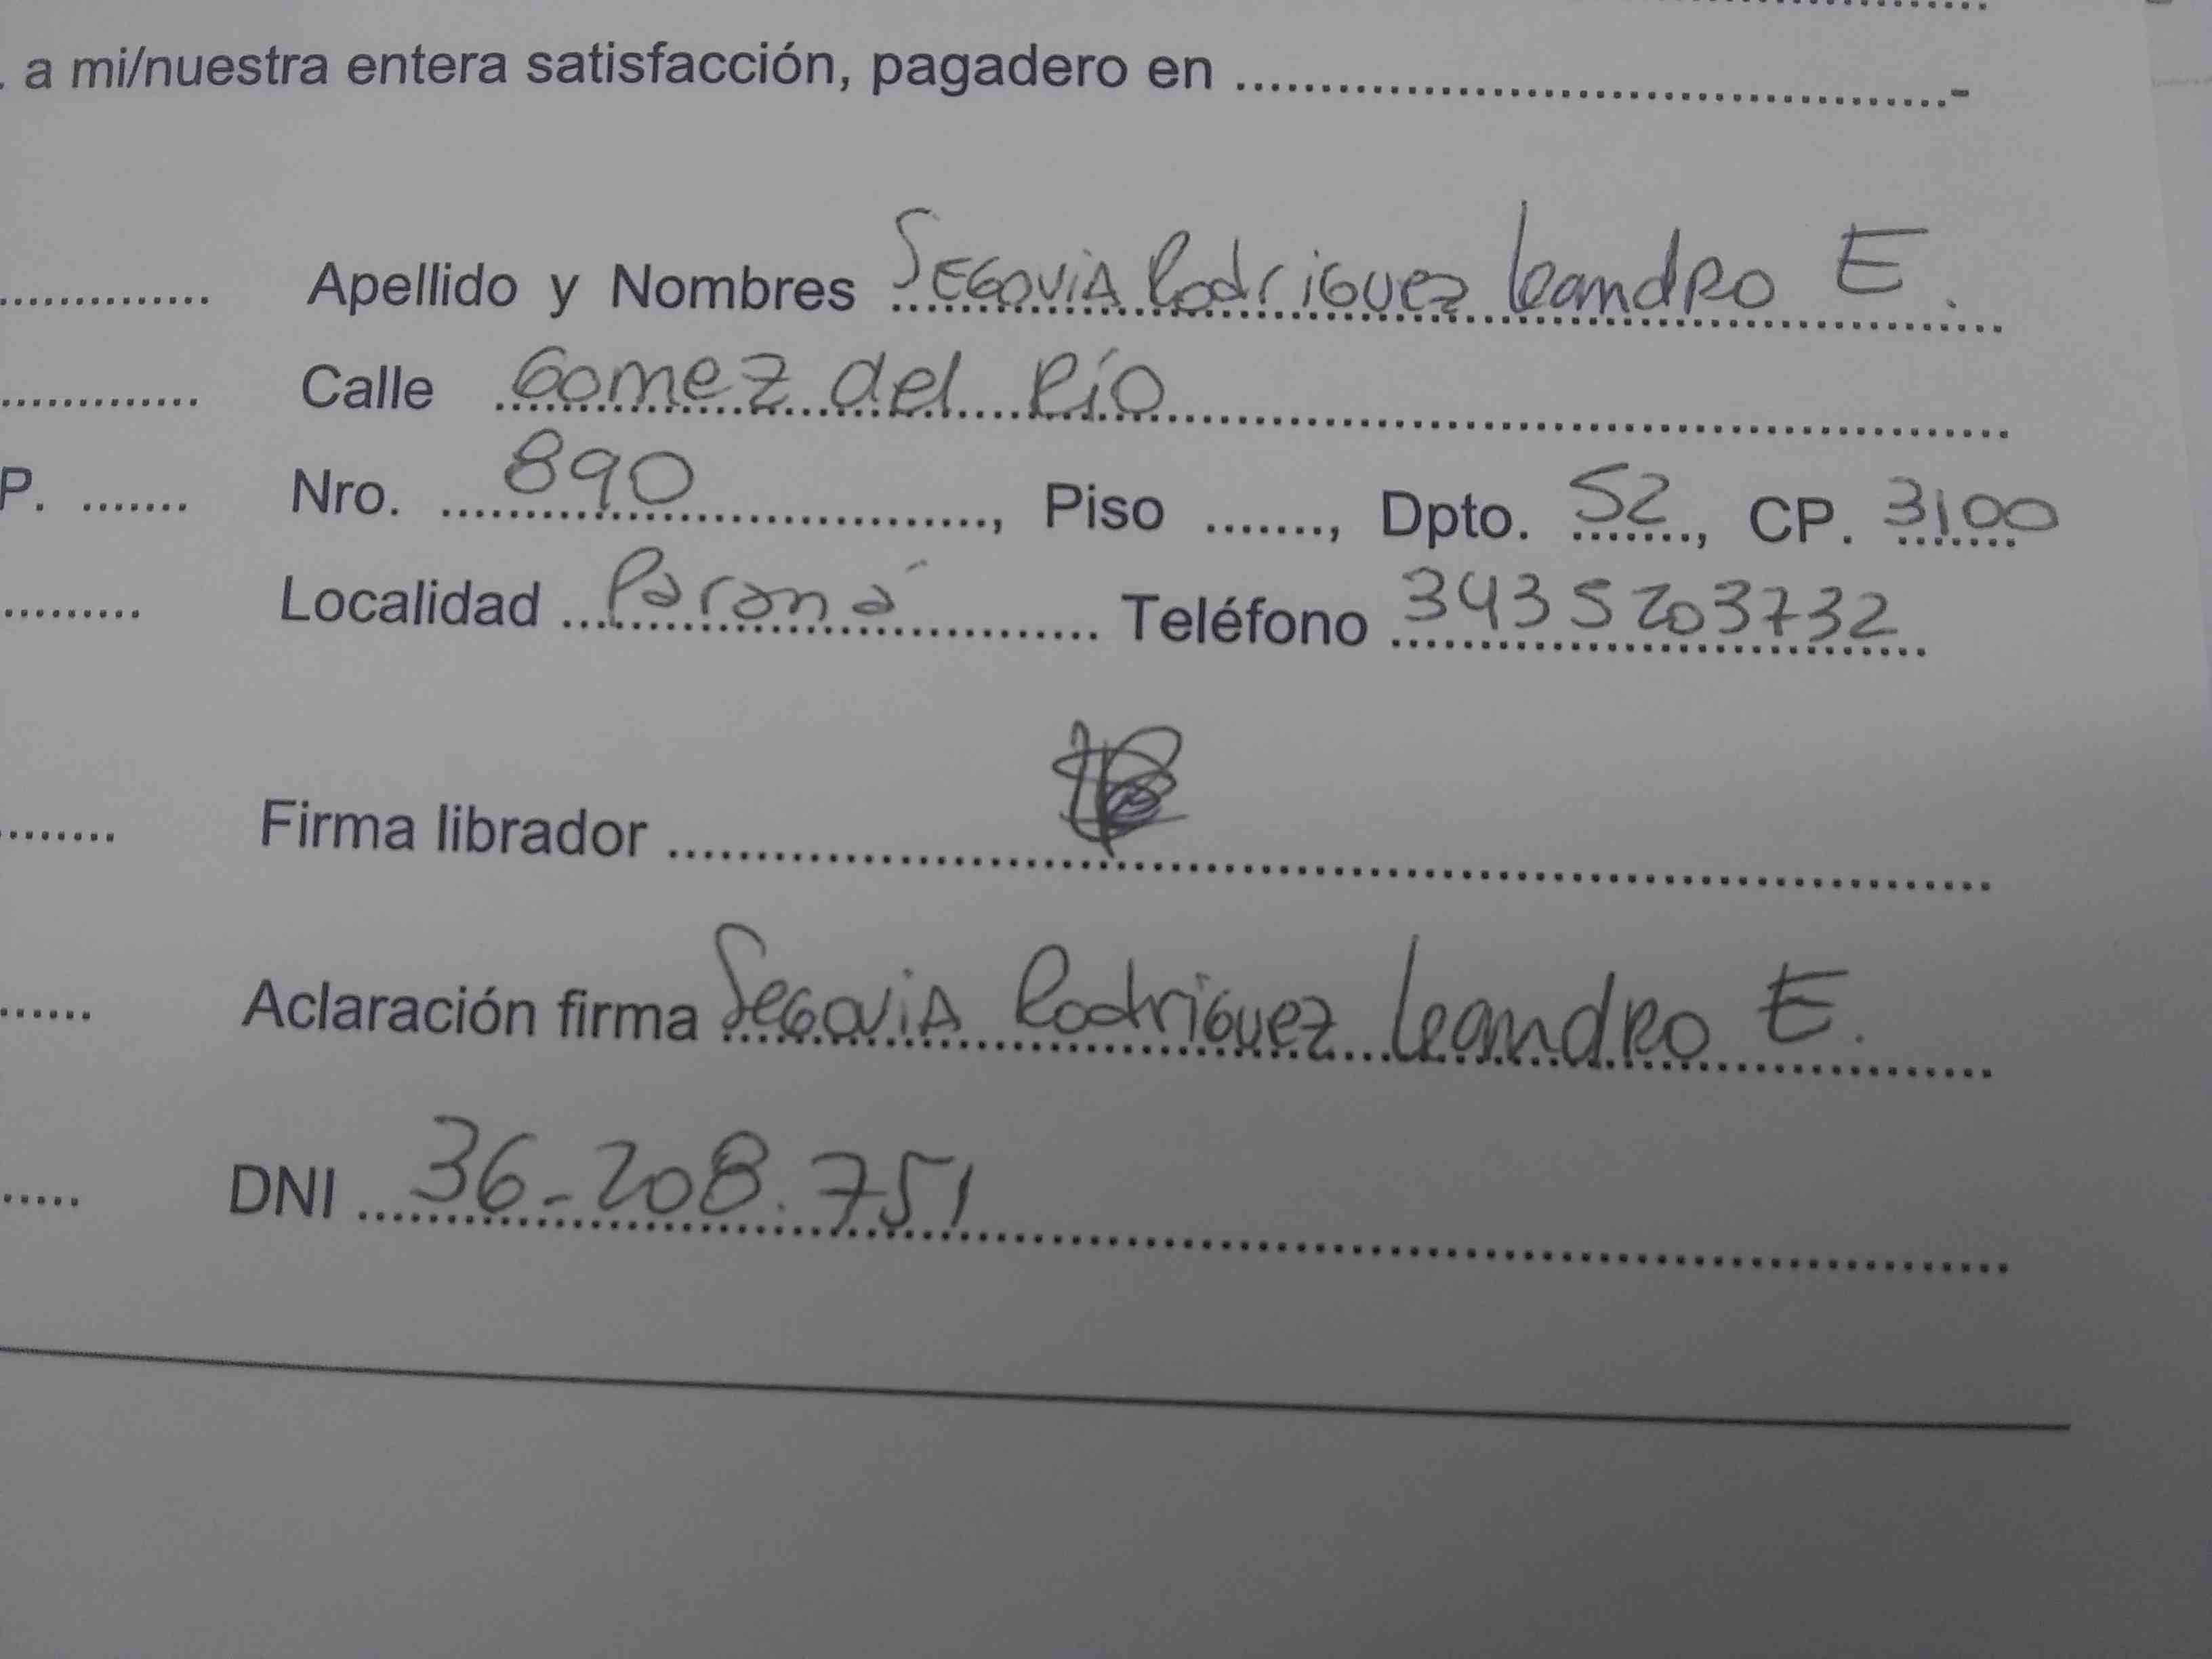 . a mi/nuestra entera satisfacción, pagadero en ........................................-
.............. Apellido y Nombres Segovia Rodriguez Leandro E.
............. Calle Gomez del Río
P. ....... Nro. 890, Piso ......., Dpto. 52, CP. 3100
......... Localidad Paraná Teléfono 3435203732
........ Firma librador
...... Aclaración firma Segovia Rodriguez Leandro E.
..... DNI 36-208.751